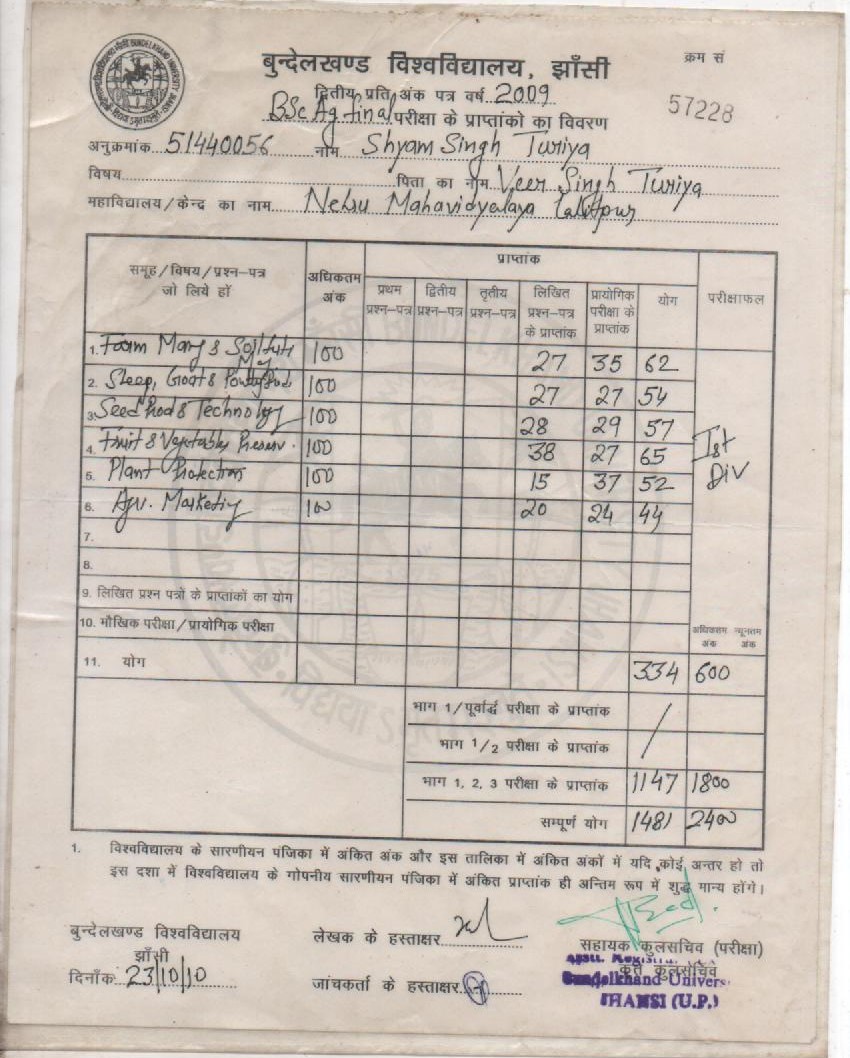 बुन्देलखण्ड विश्वविद्यालय, झाँसी
क्रम सं
57228
द्वितीय प्रति अंक पत्र वर्ष 2009
BSc Ag final परीक्षा के प्राप्तांको का विवरण
अनुक्रमांक 51440056 नाम Shyam Singh Turiya
विषय पिता का नाम Veer Singh Turiya
महाविद्यालय/केन्द का नाम Nehru Mahavidyalaya Lalitpur
समूह/विषय/प्रश्न-पत्र जो लिये हों
अधिकतम अंक
प्राप्तांक
प्रथम प्रश्न-पत्र
द्वितीय प्रश्न-पत्र
तृतीय प्रश्न-पत्र
लिखित प्रश्न-पत्र के प्राप्तांक
प्रायोगिक परीक्षा के प्राप्तांक
योग
परीक्षाफल
1. Farm Mang & 100 27 35 62
2. Sheep, Goat & 100 27 27 54
3. Seed Prod & Technology 100 28 29 57
4. Fruit & Vegetables Preserv. 100 38 27 65
5. Plant Protection 100 15 37 52
6. Agri. Marketing 100 20 24 44
Ist Div
7.
8.
9. लिखित प्रश्न पत्रों के प्राप्तांकों का योग
10. मौखिक परीक्षा/प्रायोगिक परीक्षा
अधिकतम अंक न्यूनतम अंक
11. योग 334 600
भाग 1/पूर्वार्द्ध परीक्षा के प्राप्तांक /
भाग 1/2 परीक्षा के प्राप्तांक
भाग 1, 2, 3 परीक्षा के प्राप्तांक 1147 1800
सम्पूर्ण योग 1481 2400
1. विश्वविद्यालय के सारणीयन पंजिका में अंकित अंक और इस तालिका में अंकित अंकों में यदि कोई अन्तर हो तो
इस दशा में विश्वविद्यालय के गोपनीय सारणीयन पंजिका में अंकित प्राप्तांक ही अन्तिम रूप में शुद्ध मान्य होंगे।
बुन्देलखण्ड विश्वविद्यालय
झाँसी
दिनाँक 23/10/10
लेखक के हस्ताक्षर
जांचकर्ता के हस्ताक्षर
सहायक कुलसचिव (परीक्षा)
कृते कुलसचिव
Bundelkhand Univers
JHANSI (U.P.)